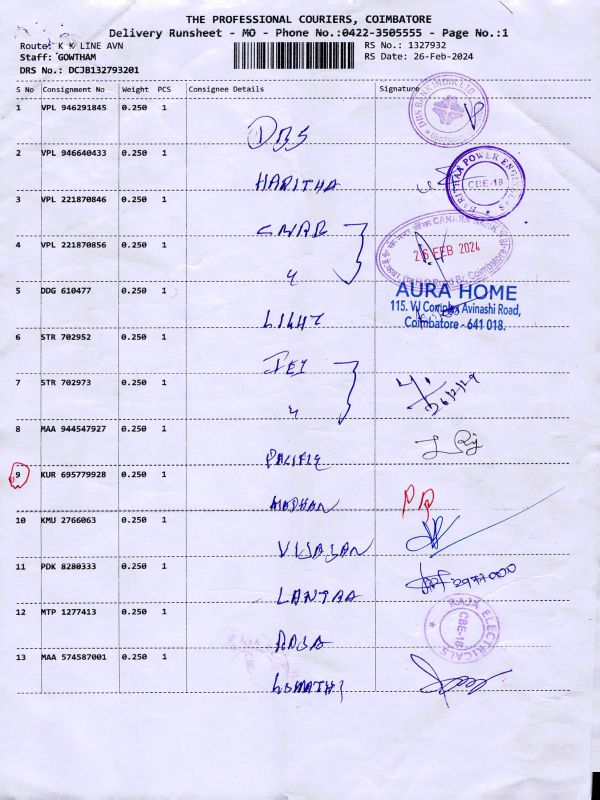 THE PROFESSIONAL COURIERS, COIMBATORE
Delivery Runsheet - MO - Phone No.:0422-3505555 - Page No.:1
Route: K K LINE AVN
RS No.: 1327932
Staff: GOWTHAM
RS Date: 26-Feb-2024
DRS No.: DCJB132793201
S No Consignment No Weight PCS Consignee Details Signature
1 VPL 946291845 0.250 1
DBS
2 VPL 946640433 0.250 1
HARITHA
CBE-18
3 VPL 221870846 0.250 1
CANARA BANK
4 VPL 221870856 0.250 1
26 FEB 2024
5 DDG 610477 0.250 1
LIGHT
AURA HOME
115. VJ Complex Avinashi Road,
Coimbatore - 641 018.
6 STR 702952 0.250 1
7 STR 702973 0.250 1
26/2/24
8 MAA 944547927 0.250 1
PACIFIC
9 KUR 695779928 0.250 1
MADHAN
10 KMU 2766063 0.250 1
VIJAYAN
11 PDK 8280333 0.250 1
12 MTP 1277413 0.250 1
RAJA ELECTRICALS
CBE-18
13 MAA 574587001 0.250 1
GOMATHI